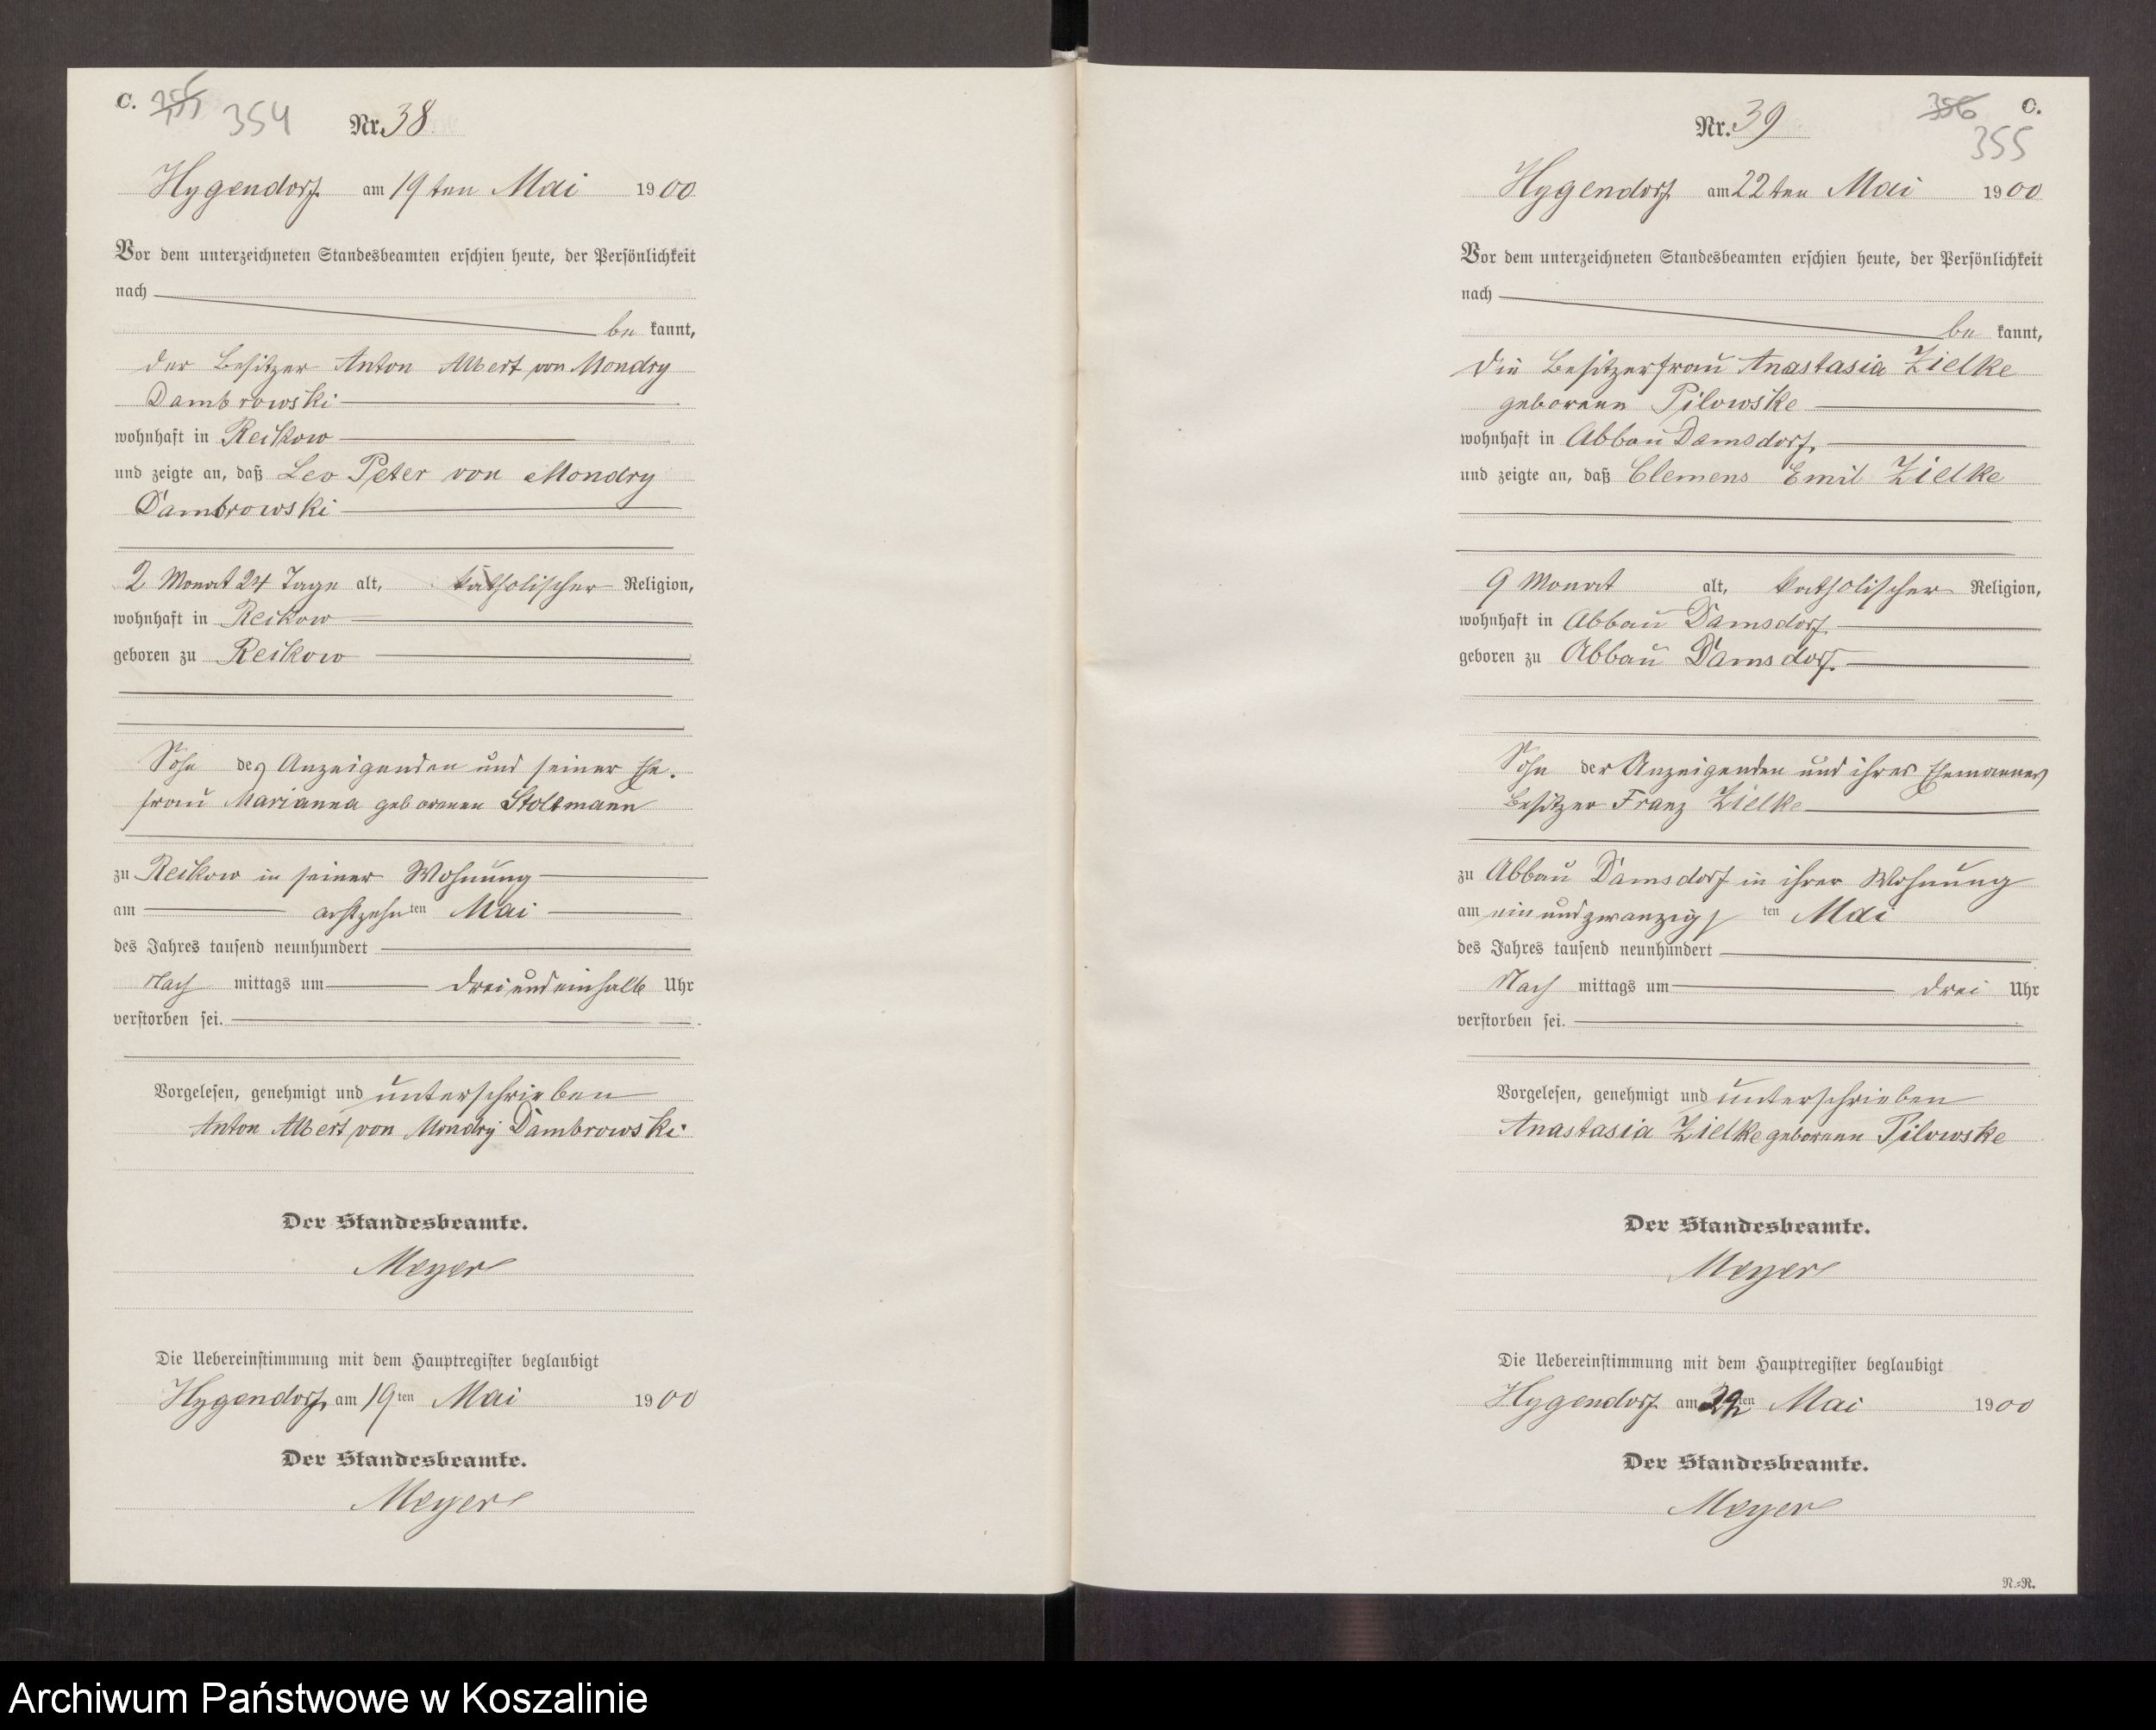 C. 355 354 Nr. 38
Hygendorf am 19ten Mai 1900
Vor dem unterzeichneten Standesbeamten erschien heute, der Persönlichkeit
nach
be kannt,
der Besitzer Anton Albert von Mondry
Dambrowski
wohnhaft in Reckow
und zeigte an, daß Leo Peter von Mondry
Dambrowski
2 Monat 24 Tage alt, katholischer Religion,
wohnhaft in Reckow
geboren zu Reckow
Sohn des Anzeigenden und seiner Ehe-
frau Marianna geborenen Stoltmann
zu Reckow in seiner Wohnung
am achtzehnten Mai
des Jahres tausend neunhundert
Nach mittags um drei und einhalb Uhr
verstorben sei.
Vorgelesen, genehmigt und unterschrieben
Anton Albert von Mondry Dambrowski
Der Standesbeamte.
Meyer
Die Uebereinstimmung mit dem Hauptregister beglaubigt
Hygendorf, am 19ten Mai 1900
Der Standesbeamte.
Meyer
Nr. 39 356 C.
355
Hygendorf am 22ten Mai 1900
Vor dem unterzeichneten Standesbeamten erschien heute, der Persönlichkeit
nach
be kannt,
die Besitzerfrau Anastasia Zielke
geborene Pilowske
wohnhaft in Abbau Damsdorf,
und zeigte an, daß Clemens Emil Zielke
9 Monat alt, katholischer Religion,
wohnhaft in Abbau Damsdorf
geboren zu Abbau Damsdorf
Sohn der Anzeigenden und ihres Ehemannes
Besitzer Franz Zielke
zu Abbau Damsdorf in ihrer Wohnung
am ein und zwanzigsten Mai
des Jahres tausend neunhundert
Nach mittags um drei Uhr
verstorben sei.
Vorgelesen, genehmigt und unterschrieben
Anastasia Zielke geborene Pilowske
Der Standesbeamte.
Meyer
Die Uebereinstimmung mit dem Hauptregister beglaubigt
Hygendorf am 22ten Mai 1900
Der Standesbeamte.
Meyer
N.=N.
Archiwum Państwowe w Koszalinie